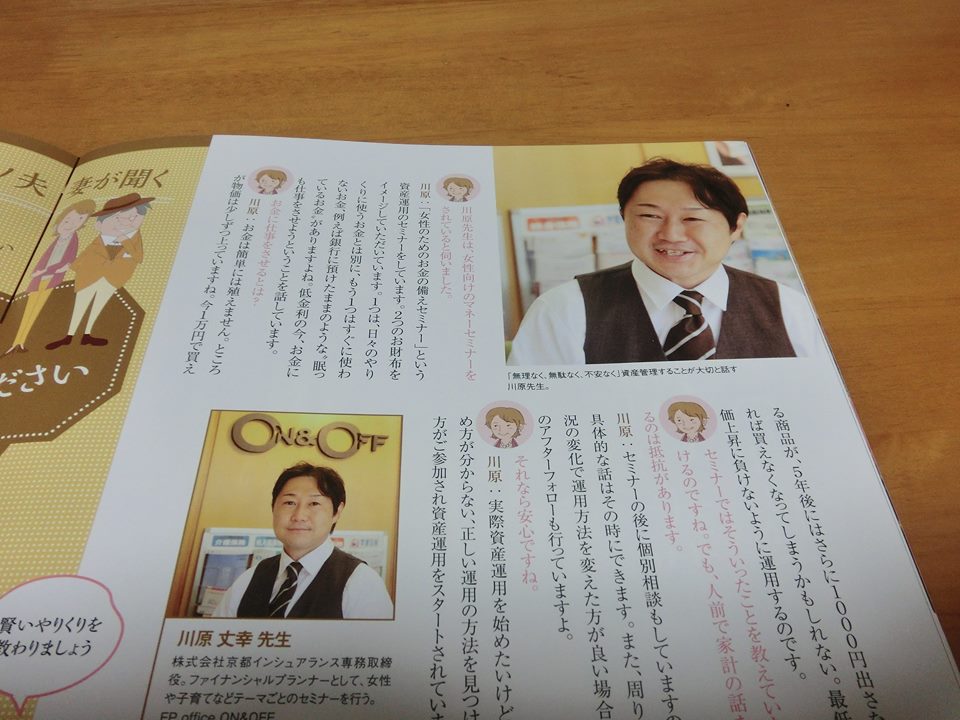 夫
妻が聞く
ださい
賢いやりくりを
教わりましょう
川原先生は、女性向けのマネーセミナーを
されていると伺いました。
川原:「女性のためのお金の備えセミナー」という
資産運用のセミナーをしています。2つのお財布を
イメージしていただいています。1つは、日々のやり
くりに使うお金とは別に、もう1つはすぐに使わ
ないお金、例えば銀行に預けたままのような『眠っ
ているお金』がありますよね。低金利の今、お金に
も仕事をさせようということを話しています。
お金に仕事をさせるとは?
川原:お金は簡単には殖えません。ところ
が物価は少しずつ上っていますね。今1万円で買え
「無理なく、無駄なく、不安なく」資産管理することが大切と話す
川原先生。
る商品が、5年後にはさらに1000円出さ
れば買えなくなってしまうかもしれない。最低
価上昇に負けないように運用するのです。
セミナーではそういったことを教えてい
けるのですね。でも、人前で家計の話
るのは抵抗があります。
川原:セミナーの後に個別相談もしていますの
具体的な話はその時にできます。また、周り
況の変化で運用方法を変えた方が良い場合
のアフターフォローも行っていますよ。
それなら安心ですね。
川原:実際資産運用を始めたいけど
め方が分からない、正しい運用の方法を見つけ
方がご参加され資産運用をスタートされていま
ON&OFF
川原 丈幸 先生
株式会社京都インシュアランス専務取締
役。ファイナンシャルプランナーとして、女性
や子育てなどテーマごとのセミナーを行う。
FP office ON&OFF